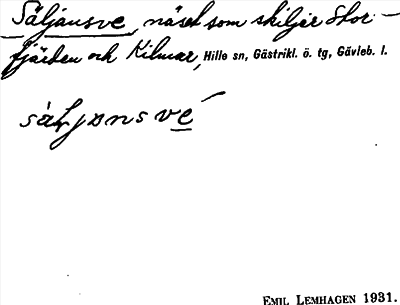 Säljansve, näset som skiljer Stor-
fjärden och Kilmar, Hille sn, Gästrikl. ö. tg, Gävleb. l.
sàljansvé
EMIL LEMHAGEN 1931.